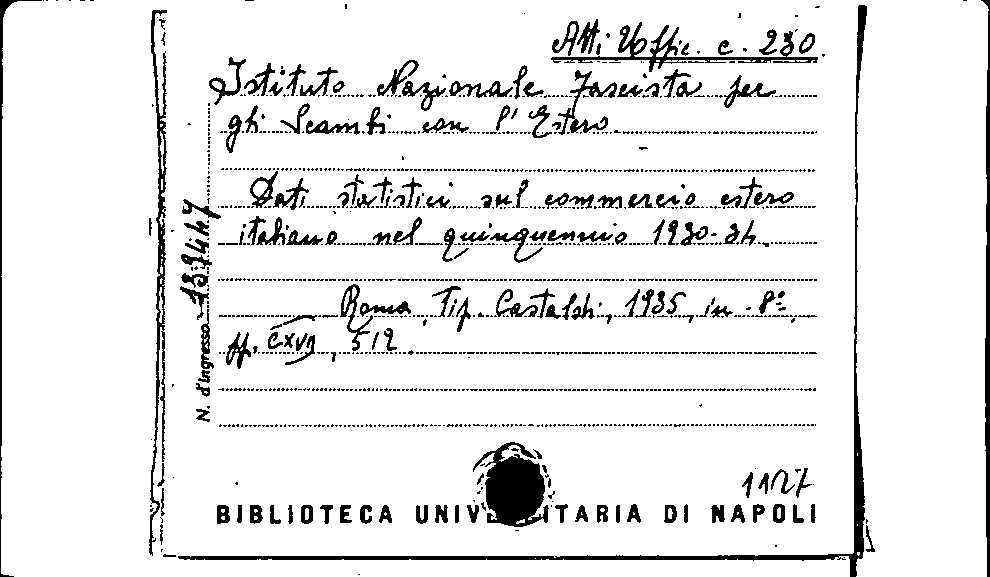 Atti Uffic. c. 230.
Istituto Nazionale Fascista per
gli Scambi con l'Estero.
Dati statistici sul commercio estero
italiano nel quinquennio 1930-34.
Roma, Tip. Castaldi, 1935, in-8º,
pp. CXVII, 512.
N. d'ingresso 139447
1127
BIBLIOTECA UNIVERSITARIA DI NAPOLI